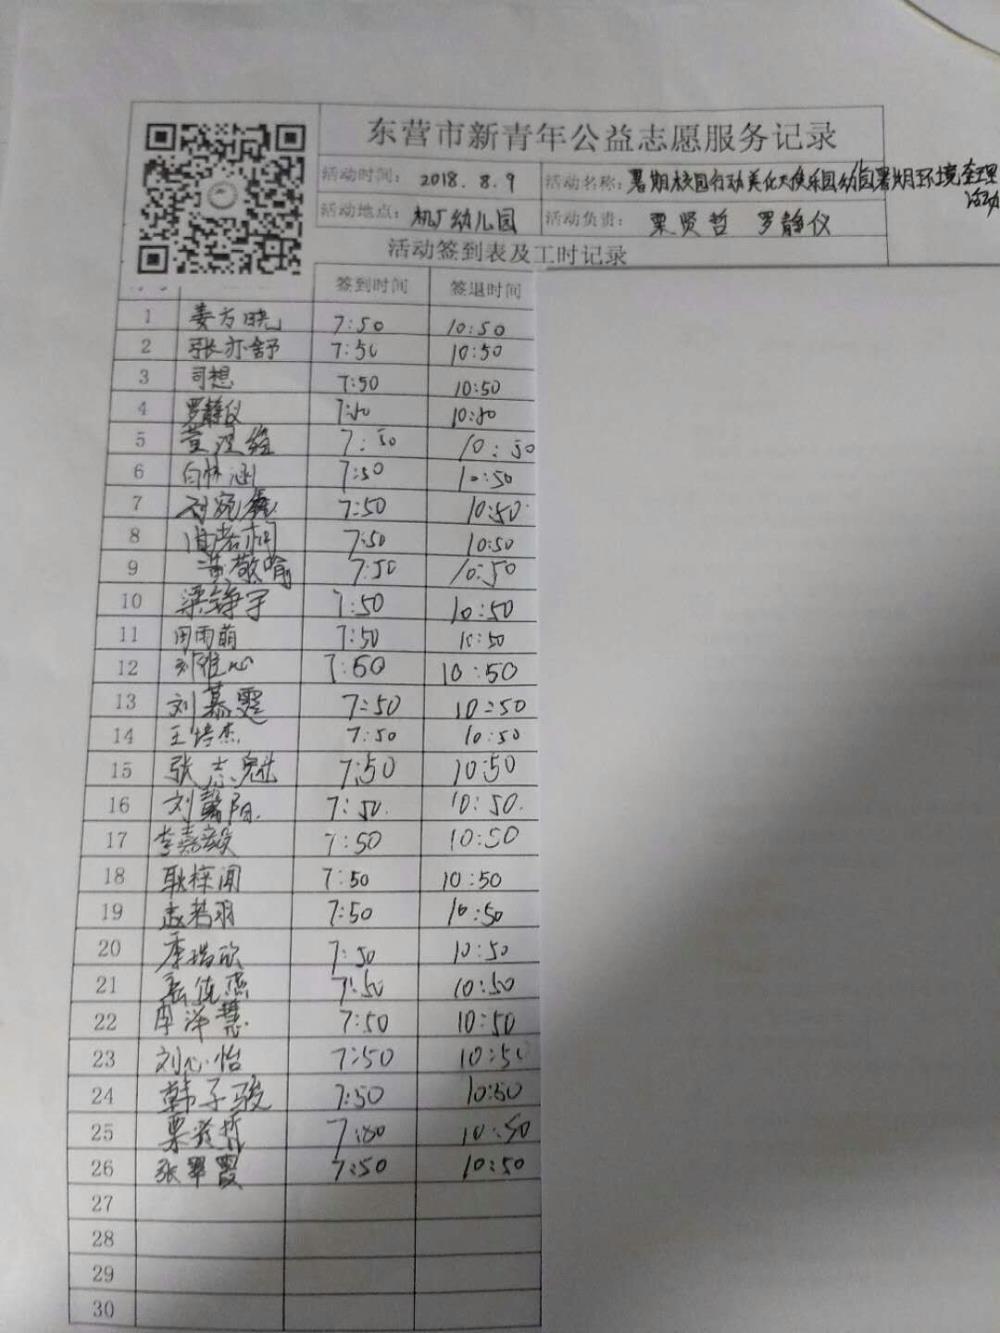 东营市新青年公益志愿服务记录
活动时间: 2018.8.9 活动名称: 暑期校园行动美化天使乐园幼儿园暑期环境整理
活动
活动地点: 机厂幼儿园 活动负责: 栗贤哲 罗静仪
活动签到表及工时记录
签到时间 签退时间
1 姜方晓 7:50 10:50
2 张亦舒 7:50 10:50
3 司想 7:50 10:50
4 罗静仪 7:50 10:50
5 7:50 10:50
6 白林涵 7:50 10:50
7 刘宛鑫 7:50 10:50
8 7:50 10:50
9 黄敬喻 7:50 10:50
10 梁铮宇 7:50 10:50
11 周雨萌 7:50 10:50
12 郑惟心 7:50 10:50
13 刘慕霆 7:50 10:50
14 王培杰 7:50 10:50
15 张志魁 7:50 10:50
16 刘馨阳 7:50 10:50
17 李嘉毅 7:50 10:50
18 耿梓闻 7:50 10:50
19 孟若羽 7:50 10:50
20 季瑞欣 7:50 10:50
21 7:50 10:50
22 李泽慧 7:50 10:50
23 刘心怡 7:50 10:50
24 韩子骏 7:50 10:50
25 栗贤哲 7:50 10:50
26 张翠霞 7:50 10:50
27
28
29
30